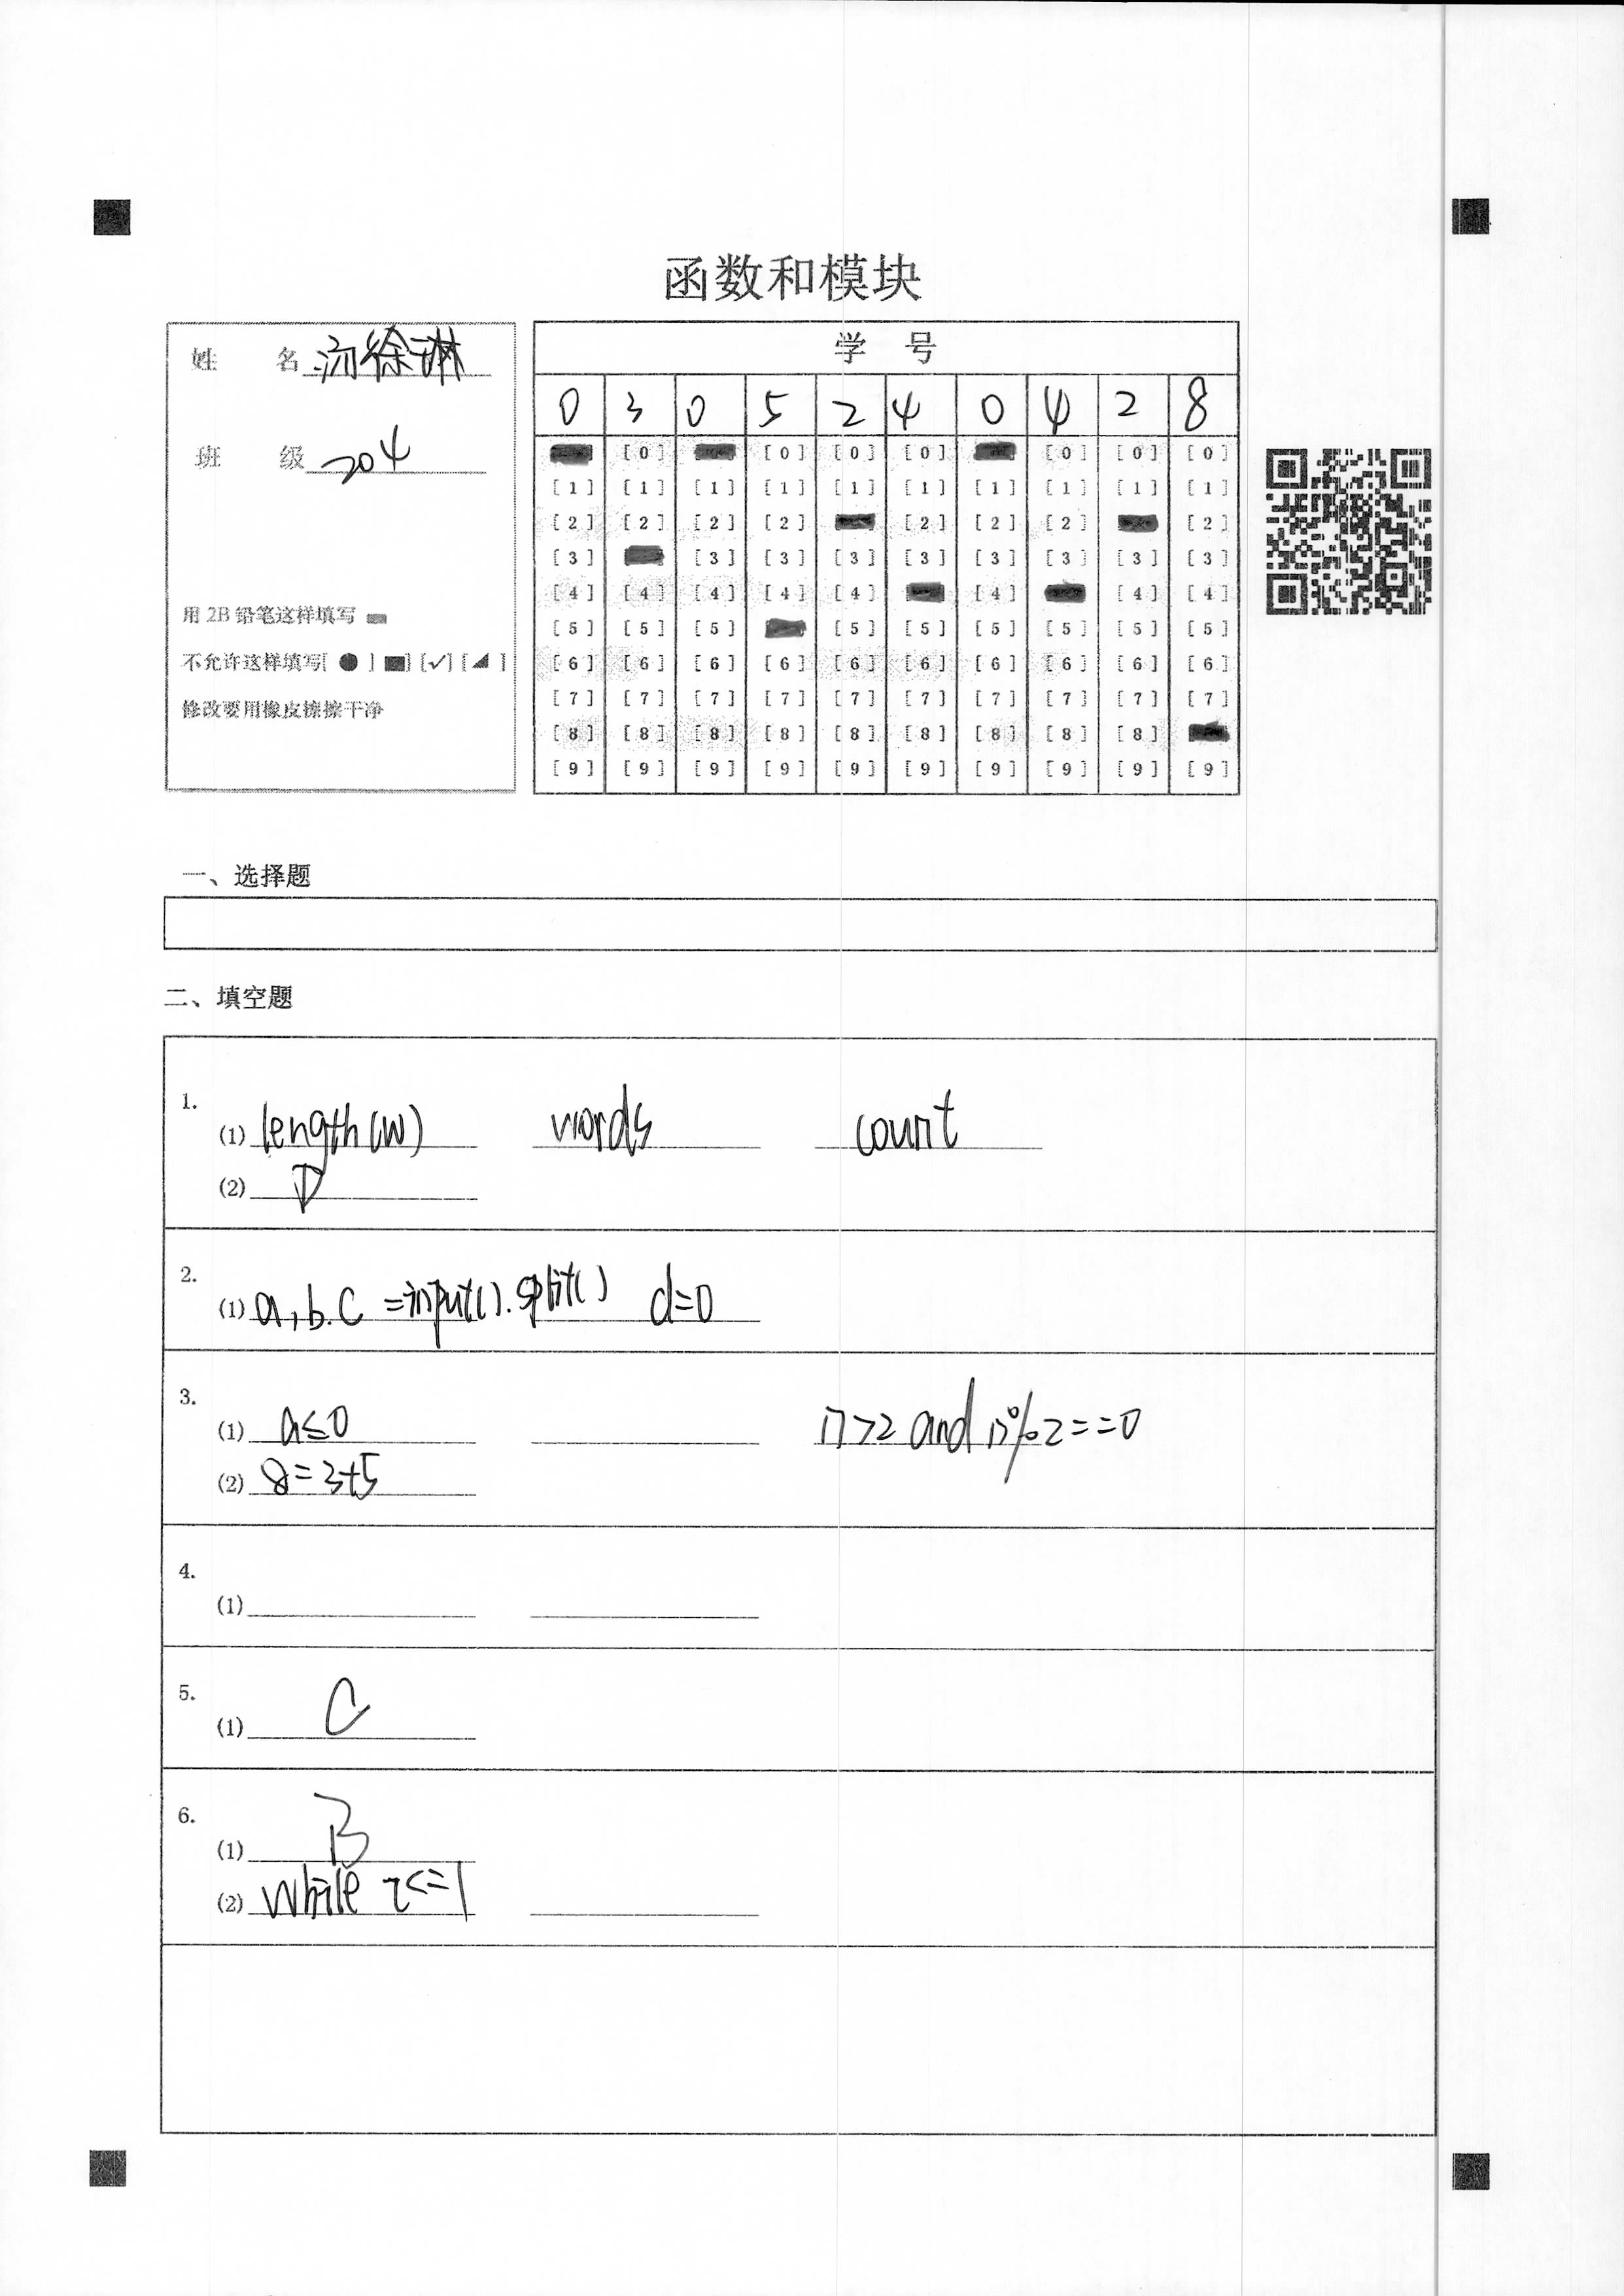 函数和模块
姓 名 汤徐琳
班 级 204
用 2B 铅笔这样填写
不允许这样填写[ ● ] [■] [✓] [◢ ]
修改要用橡皮擦擦干净
学 号
0 3 0 5 2 4 0 4 2 8
[0] [0] [0] [0] [0] [0] [0]
[1] [1] [1] [1] [1] [1] [1] [1] [1] [1]
[2] [2] [2] [2] [2] [2] [2] [2]
[3] [3] [3] [3] [3] [3] [3] [3] [3]
[4] [4] [4] [4] [4] [4] [4] [4]
[5] [5] [5] [5] [5] [5] [5] [5] [5]
[6] [6] [6] [6] [6] [6] [6] [6] [6] [6]
[7] [7] [7] [7] [7] [7] [7] [7] [7] [7]
[8] [8] [8] [8] [8] [8] [8] [8] [8]
[9] [9] [9] [9] [9] [9] [9] [9] [9] [9]
一、选择题
二、填空题
1.
(1) length(w) words count
(2) D
2.
(1) a,b.c =input().split() d=0
3.
(1) a≤0 n>2 and n%2==0
(2) 8=3+5
4.
(1)
5.
(1) C
6.
(1) B
(2) while i<=1